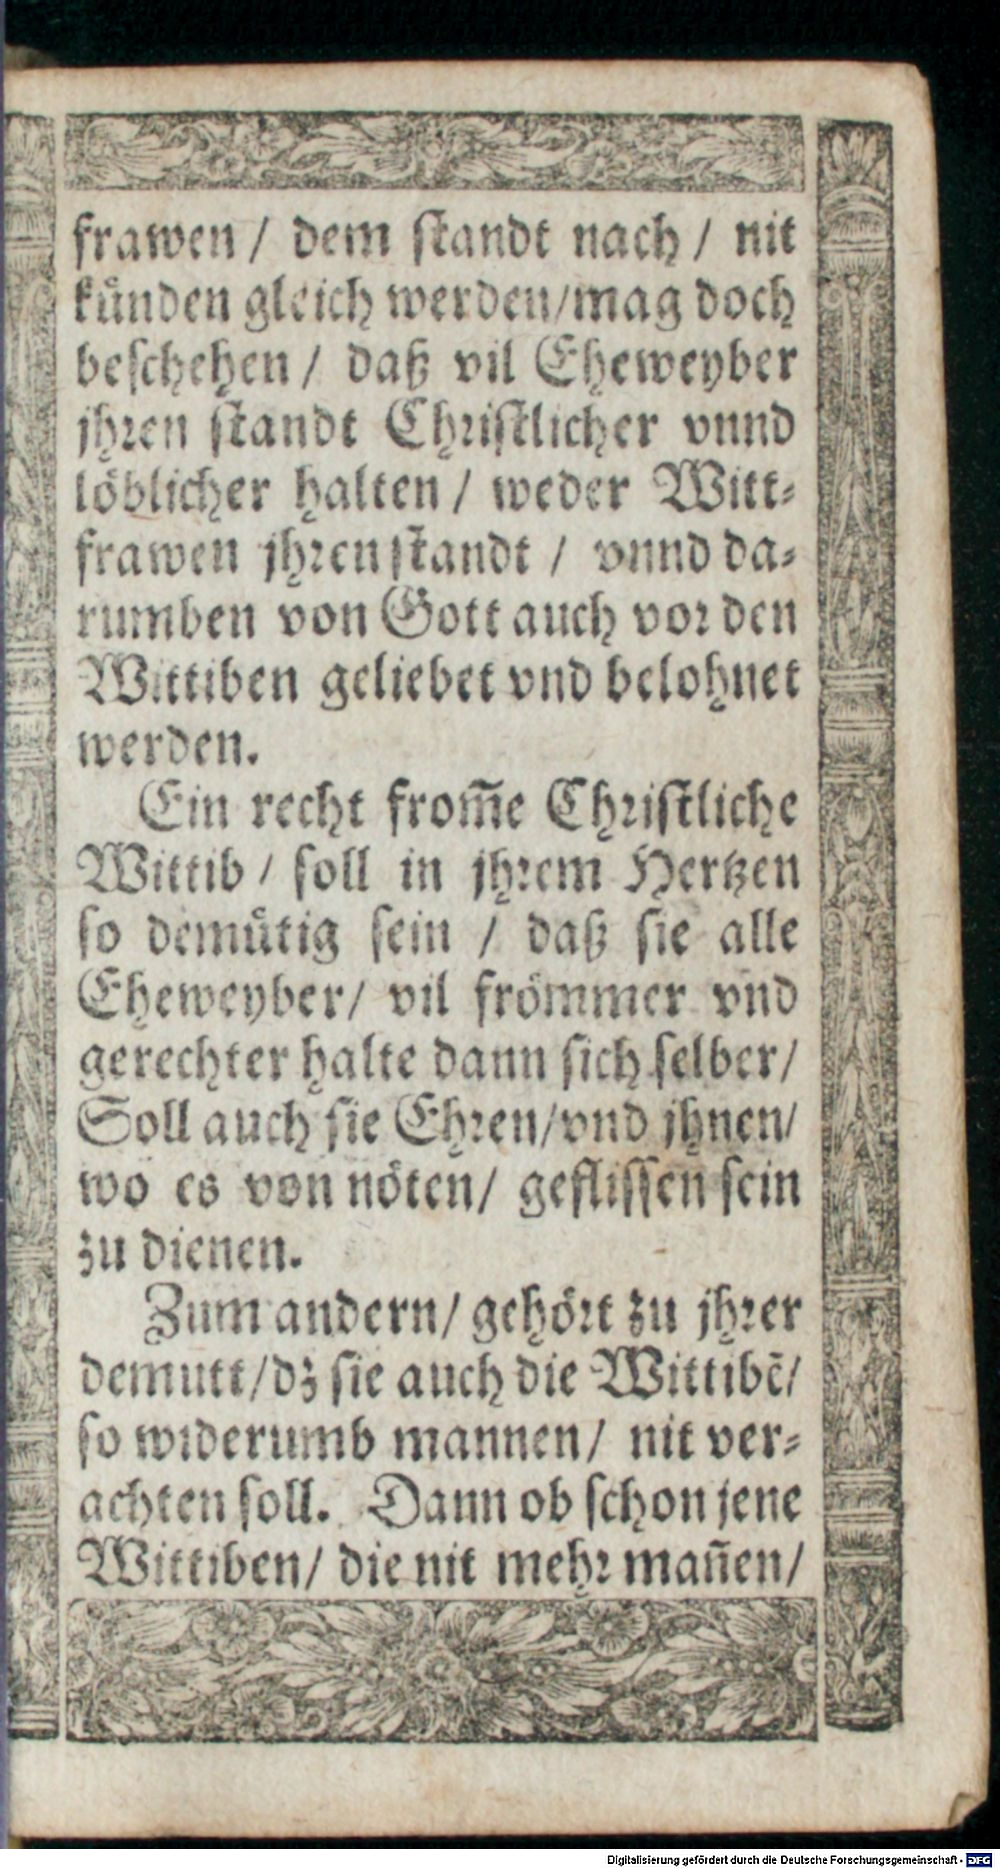 frawen / dem ſtandt nach / nit
kuͤnden gleich werden/mag doch
beſchehen / daß vil Eheweyber
jhren ſtandt Chriſtlicher vnnd
loͤblicher halten / weder Witt⸗
frawen jhren ſtandt / vnnd da⸗
rumben von Gott auch vor den
Wittiben geliebet vnd belohnet
werden.
Ein recht from̄e Chriſtliche
Wittib / ſoll in jhrem Hertzen
ſo demuͤtig ſein / daß ſie alle
Eheweyber/ vil froͤmmer vnd
gerechter halte dann ſich ſelber/
Soll auch ſie Ehren/vnd jhnen/
wo es von noͤten/ gefliſſen ſein
zu dienen.
Zum andern/ gehoͤrt zu jhrer
demutt/dz ſie auch die Wittibē/
ſo widerumb mannen/ nit ver⸗
achten ſoll. Dann ob ſchon jene
Wittiben/ die nit mehr man̄en/
Digitalisierung gefördert durch die Deutsche Forschungsgemeinschaft - DFG